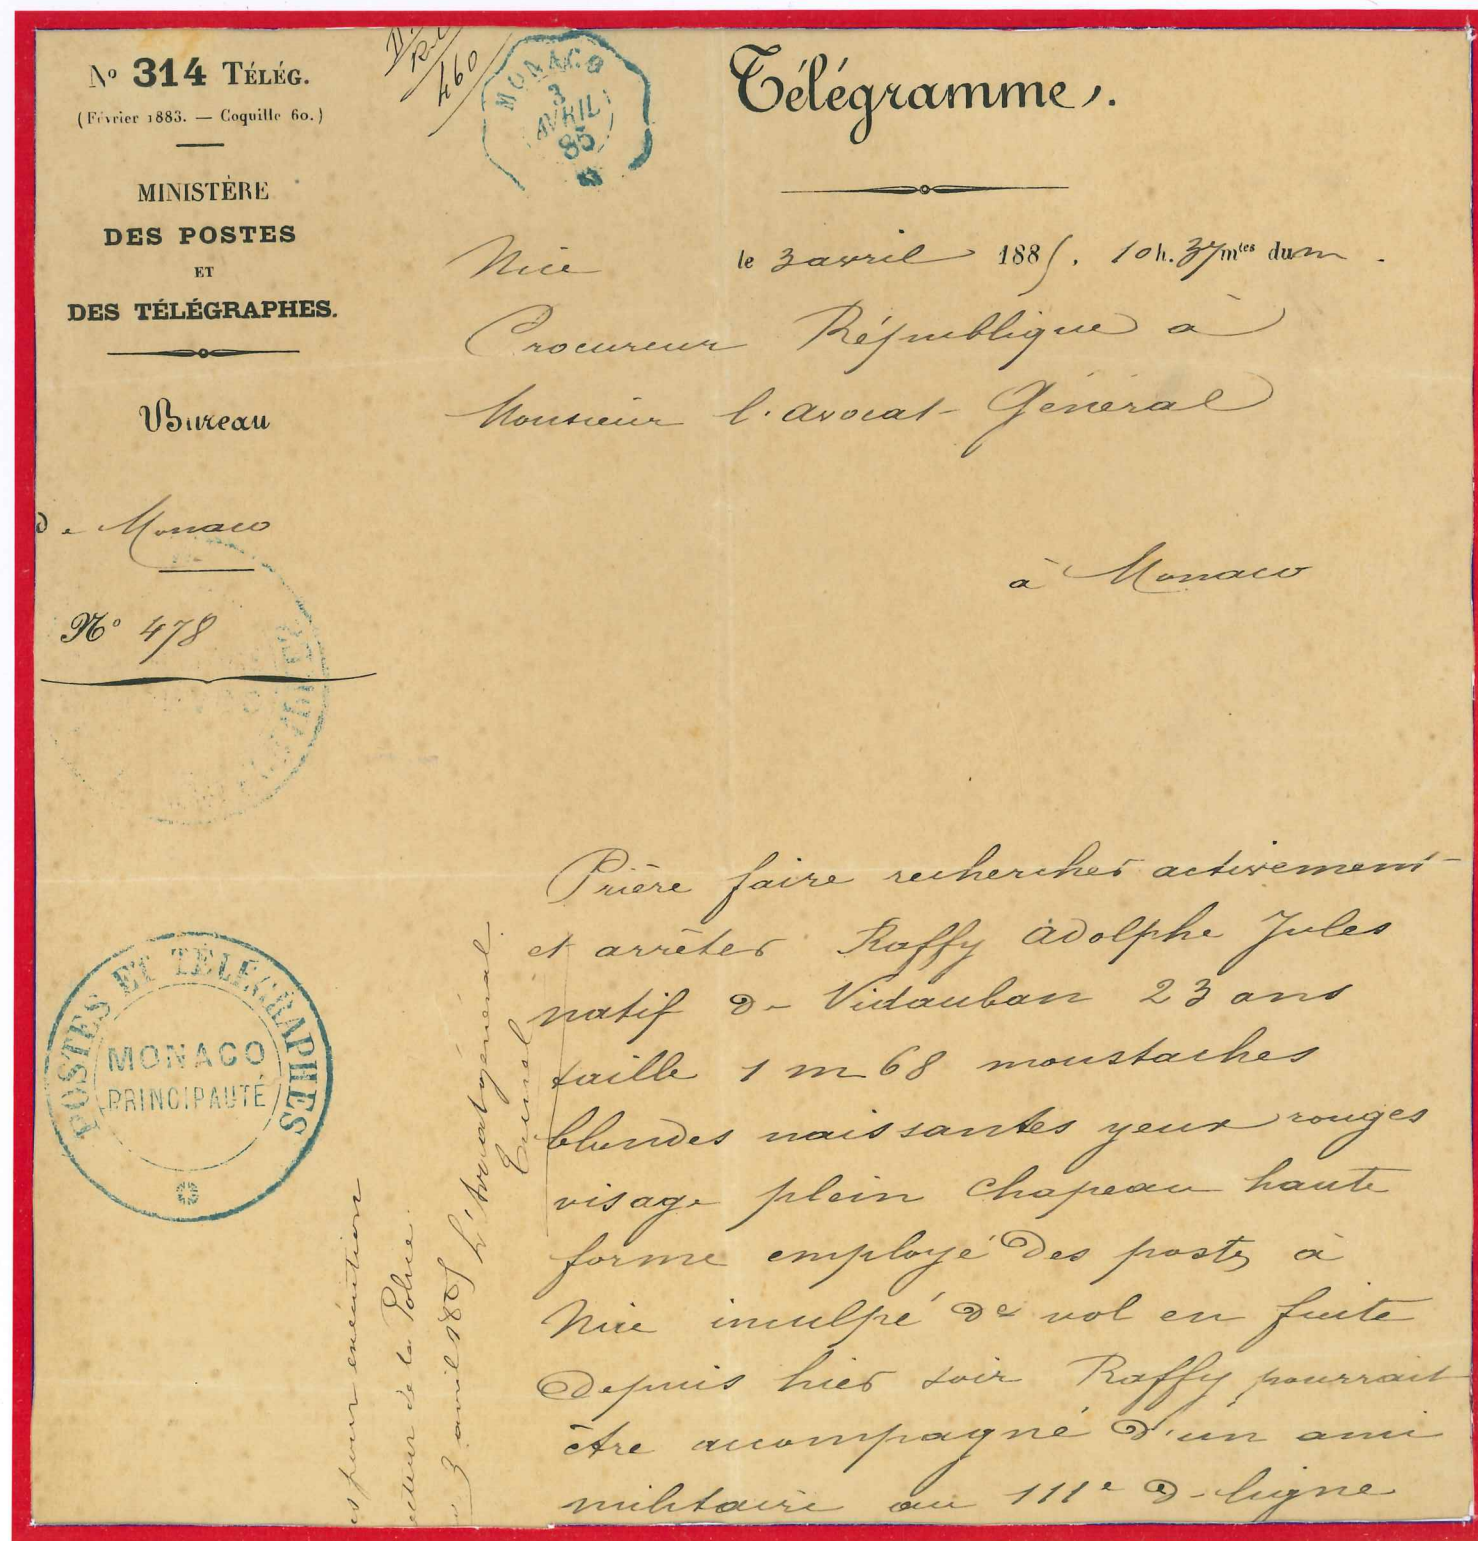 N° 314 TÉLÉG.
(Février 1883. — Coquille 60.)
MINISTÈRE
DES POSTES
ET
DES TÉLÉGRAPHES.
Bureau
de Monaco
N° 478
460
MONACO
3
AVRIL
85
Télégramme.
Nice le 3 avril 1885. 10 h. 37 mtes du m.
Procureur République à
Monsieur l'avocat Général
à Monaco
Prière faire rechercher activement
et arrêter Raffy Adolphe Jules
natif de Vidauban 23 ans
taille 1 m 68 moustaches
blondes naissantes yeux rouges
visage plein chapeau haute
forme employé des postes à
Nice inculpé de vol en fuite
depuis hier soir Raffy pourrait
être accompagné d'un ami
militaire au 111e de ligne
POSTES ET TÉLÉGRAPHES
MONACO
PRINCIPAUTÉ
pour exécution
de la Police.
3 avril 1885
L'Avocat général